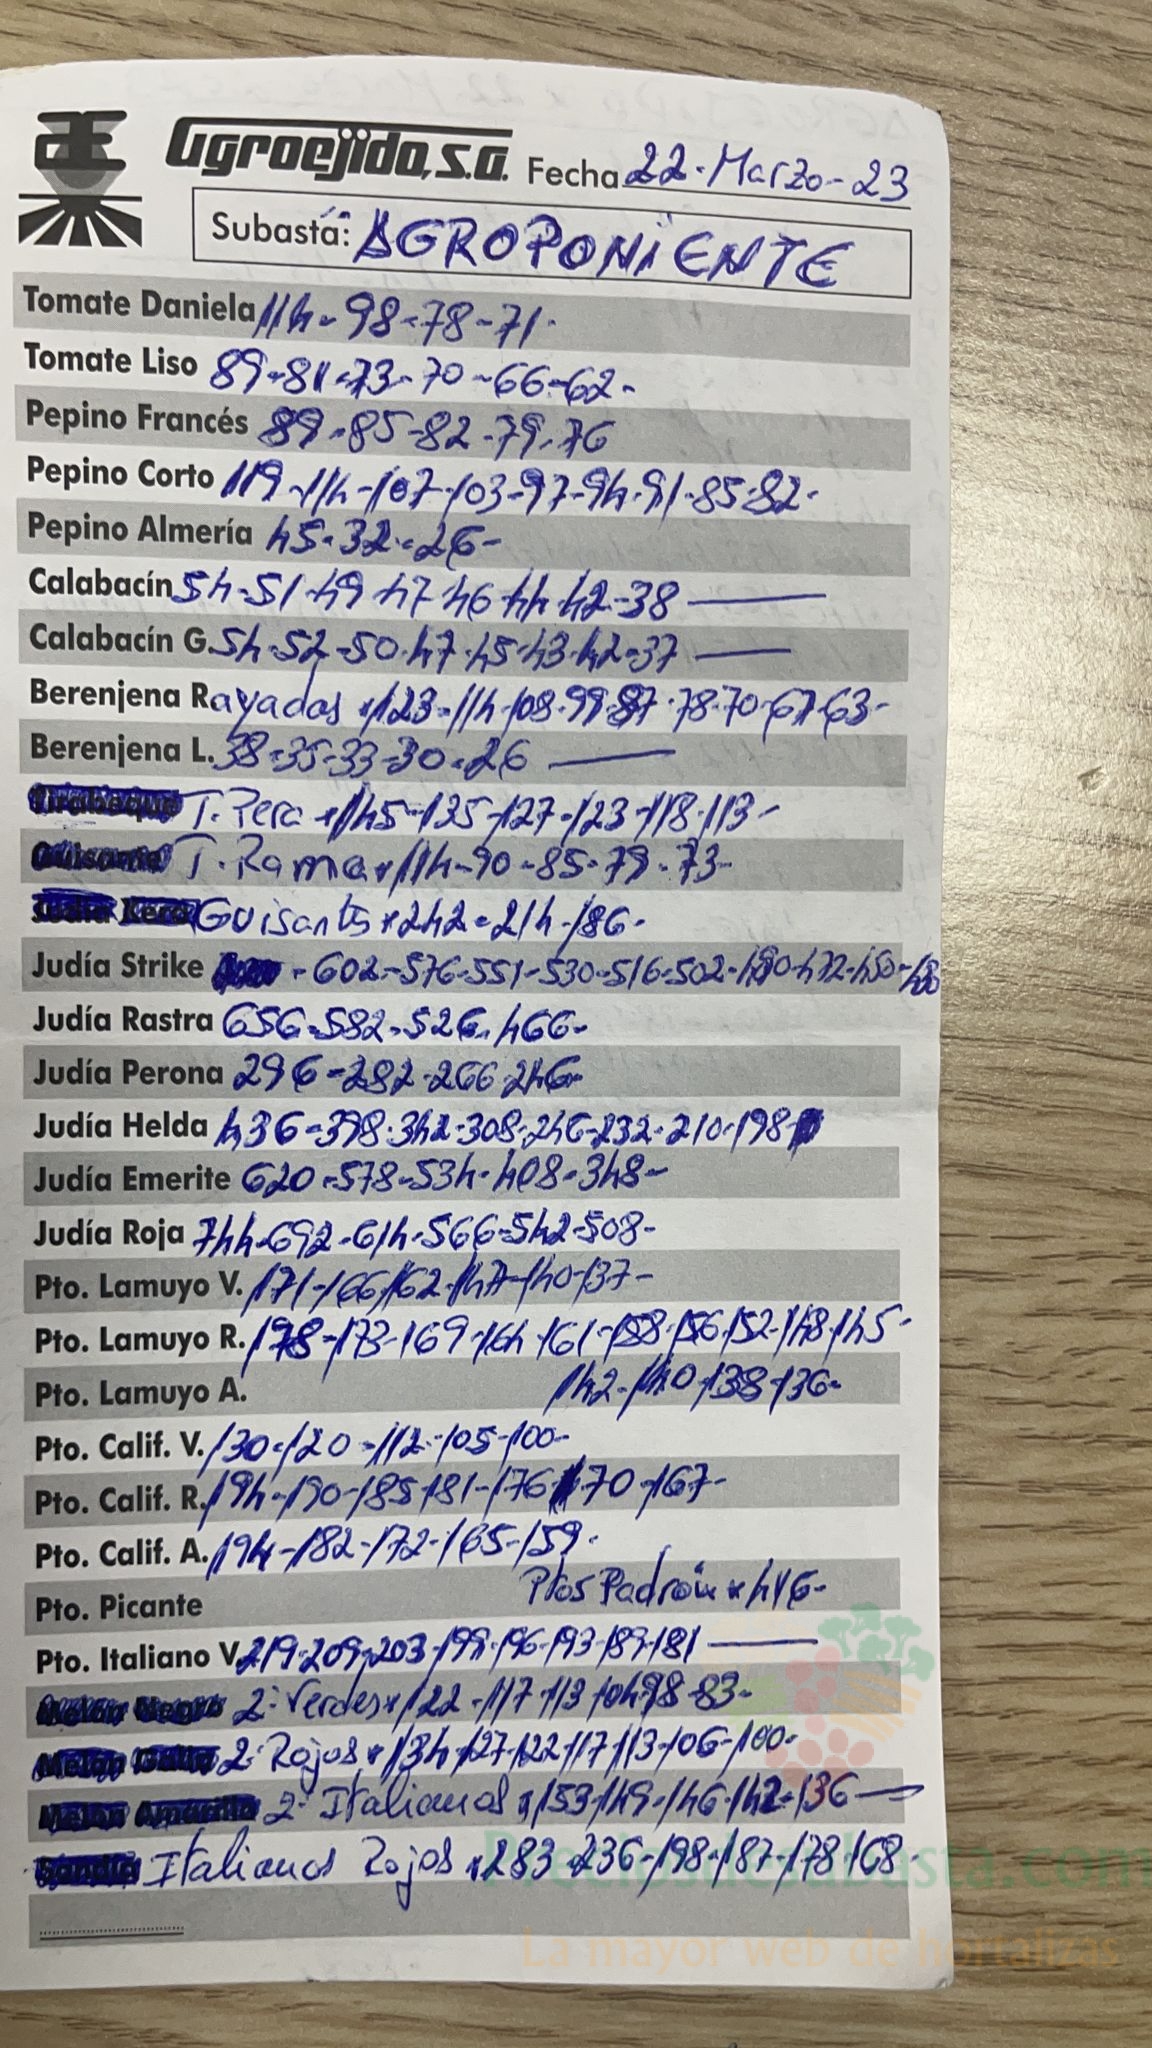 agroejido, s.a. Fecha 22-Marzo-23
Subasta: AGROPONIENTE
Tomate Daniela 114-98-78-71-
Tomate Liso 89-81-73-70-66-62-
Pepino Francés 89-85-82-79-76
Pepino Corto 119-114-107-103-97-94-91-85-82-
Pepino Almería 45-32-26-
Calabacín 54-51-49-47-46-44-42-38
Calabacín G. 54-52-50-47-45-43-42-37
Berenjena Rayadas x 123-114-108-99-87-78-70-67-63-
Berenjena L. 38-35-33-30-26
T. Pera x 145-135-127-123-118-113-
T. Rama x 114-90-85-79-73-
Guisantes x 242-214-186-
Judía Strike - 602-576-551-530-516-502-490-472-450-430
Judía Rastra 656-582-526-466-
Judía Perona 296-282-266-246-
Judía Helda 436-398-342-308-246-232-210-198-
Judía Emerite 620-578-534-408-348-
Judía Roja 744-692-614-566-542-508-
Pto. Lamuyo V. 171-166-162-147-140-137-
Pto. Lamuyo R. 178-173-169-164-161-158-156-152-148-145-
Pto. Lamuyo A. 142-140-138-136-
Pto. Calif. V. 130-120-112-105-100-
Pto. Calif. R. 194-190-185-181-176-170-167-
Pto. Calif. A. 194-182-172-165-159-
Pto. Picante Ptos Padrón x 416-
Pto. Italiano V. 219-209-203-199-196-193-189-181
2ª Verdes x 122-117-113-104-98-83-
2ª Rojos x 134-127-122-117-113-106-100-
2ª Italianos x 153-149-146-142-136
Italianos Rojos x 283-236-198-187-178-168-
Preciosdesubasta.com
La mayor web de hortalizas